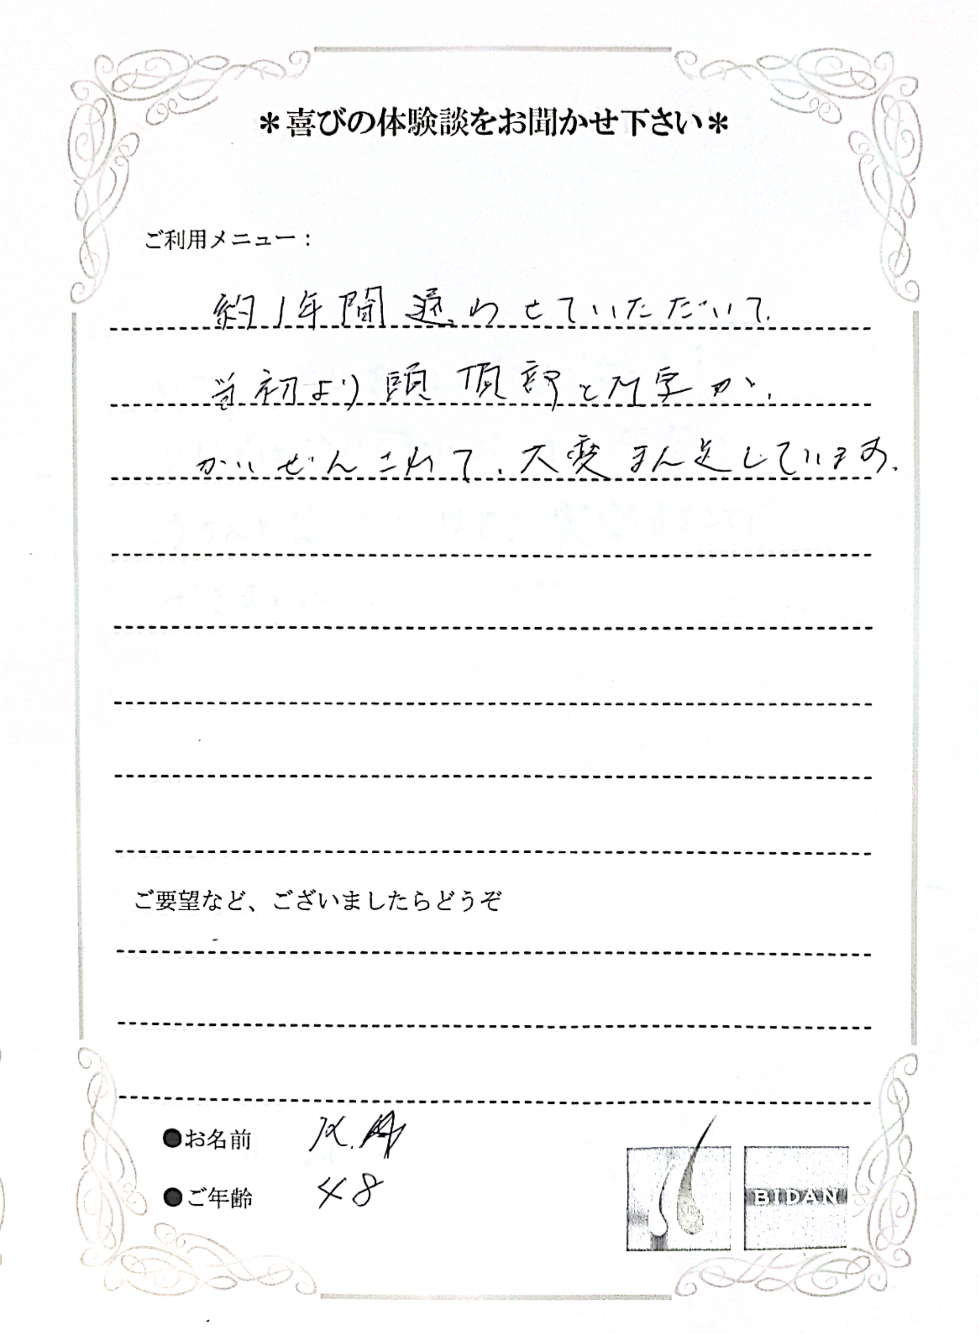 ＊喜びの体験談をお聞かせ下さい＊
ご利用メニュー：
約1年間通わせていただいて、
当初より頭頂部とM字が、
かいぜんされて、大変まん足しています。
ご要望など、ございましたらどうぞ
●お名前 K.
●ご年齢 48
BIDAN